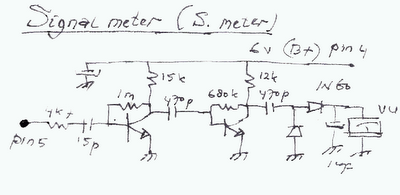 Signal meter (S. meter)
6v (B+) pin 4
15k
12k
1m
470p
680k
470p
1N60
VU
4k7
15p
pin 5
1µf